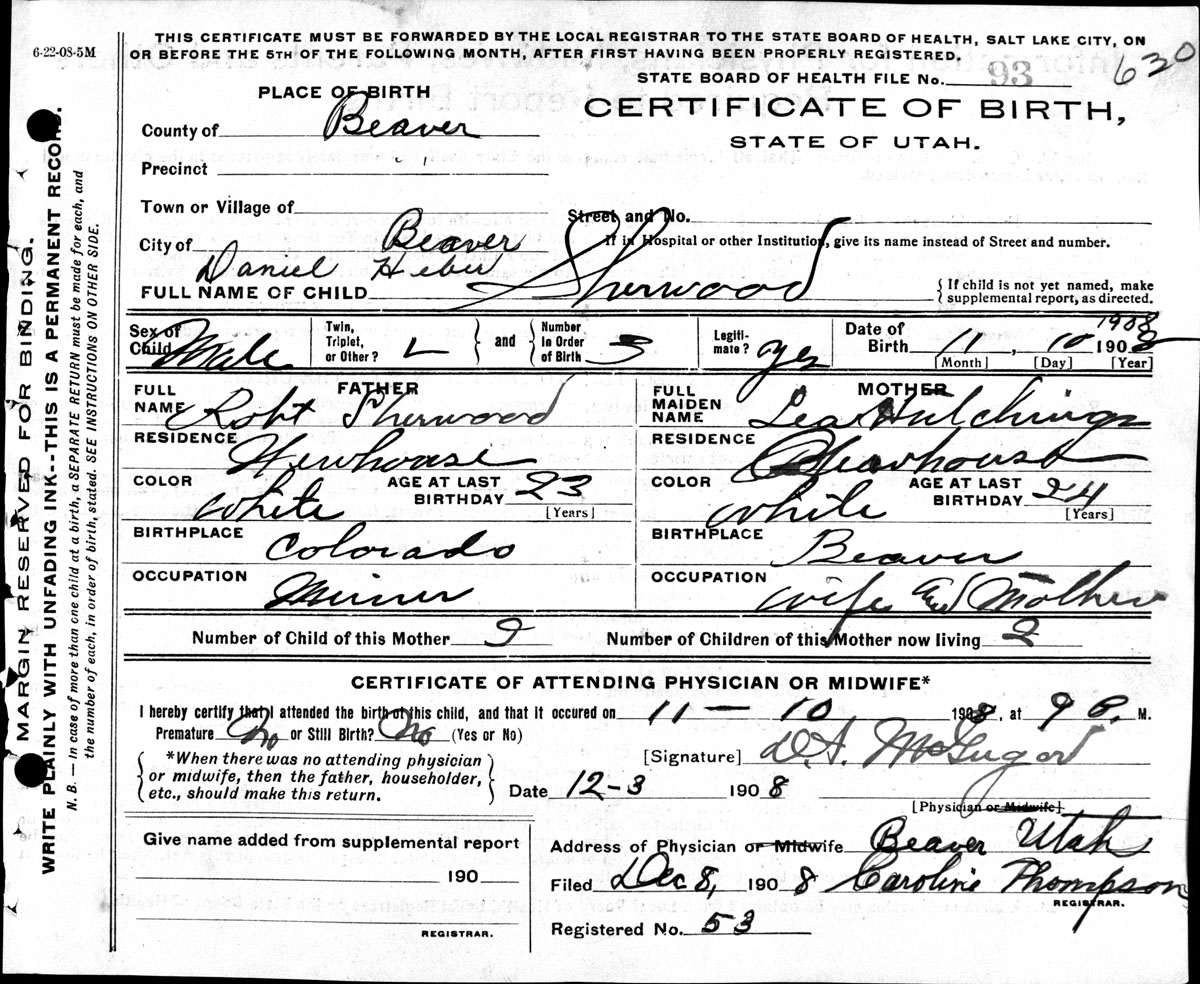 6-22-08-5M
THIS CERTIFICATE MUST BE FORWARDED BY THE LOCAL REGISTRAR TO THE STATE BOARD OF HEALTH, SALT LAKE CITY, ON
OR BEFORE THE 5TH OF THE FOLLOWING MONTH, AFTER FIRST HAVING BEEN PROPERLY REGISTERED.
630
STATE BOARD OF HEALTH FILE No. 93
PLACE OF BIRTH
CERTIFICATE OF BIRTH,
STATE OF UTAH.
County of Beaver
Precinct
Town or Village of
Street and No.
City of Beaver
If in Hospital or other Institution, give its name instead of Street and number.
FULL NAME OF CHILD Daniel Heber Sherwood
{ If child is not yet named, make
supplemental report, as directed.
Sex of Child Male
Twin, Triplet, or Other?
and
Number in Order of Birth 3
Legitimate? yes
Date of Birth 11, 10 1908
[Month] [Day] [Year]
FATHER
FULL NAME Robt Sherwood
RESIDENCE Newhouse
COLOR White
AGE AT LAST BIRTHDAY 23
[Years]
BIRTHPLACE Colorado
OCCUPATION Miner
MOTHER
FULL MAIDEN NAME Lea Hutchings
RESIDENCE Newhouse
COLOR White
AGE AT LAST BIRTHDAY 24
[Years]
BIRTHPLACE Beaver
OCCUPATION Wife and Mother
Number of Child of this Mother 2 Number of Children of this Mother now living 2
CERTIFICATE OF ATTENDING PHYSICIAN OR MIDWIFE*
I hereby certify that I attended the birth of this child, and that it occured on 11 - 10 1908, at 9 P. M.
Premature No or Still Birth? No (Yes or No)
[Signature]
*When there was no attending physician
or midwife, then the father, householder,
etc., should make this return.
Date 12-3 1908
[Physician or Midwife]
Give name added from supplemental report
190
REGISTRAR.
Address of Physician or Midwife Beaver Utah
Filed Dec 8, 1908 Caroline Thompson
REGISTRAR.
Registered No. 53
MARGIN RESERVED FOR BINDING.
WRITE PLAINLY WITH UNFADING INK--THIS IS A PERMANENT RECORD.
N. B. — In case of more than one child at a birth, a SEPARATE RETURN must be made for each, and
the number of each, in order of birth, stated. SEE INSTRUCTIONS ON OTHER SIDE.